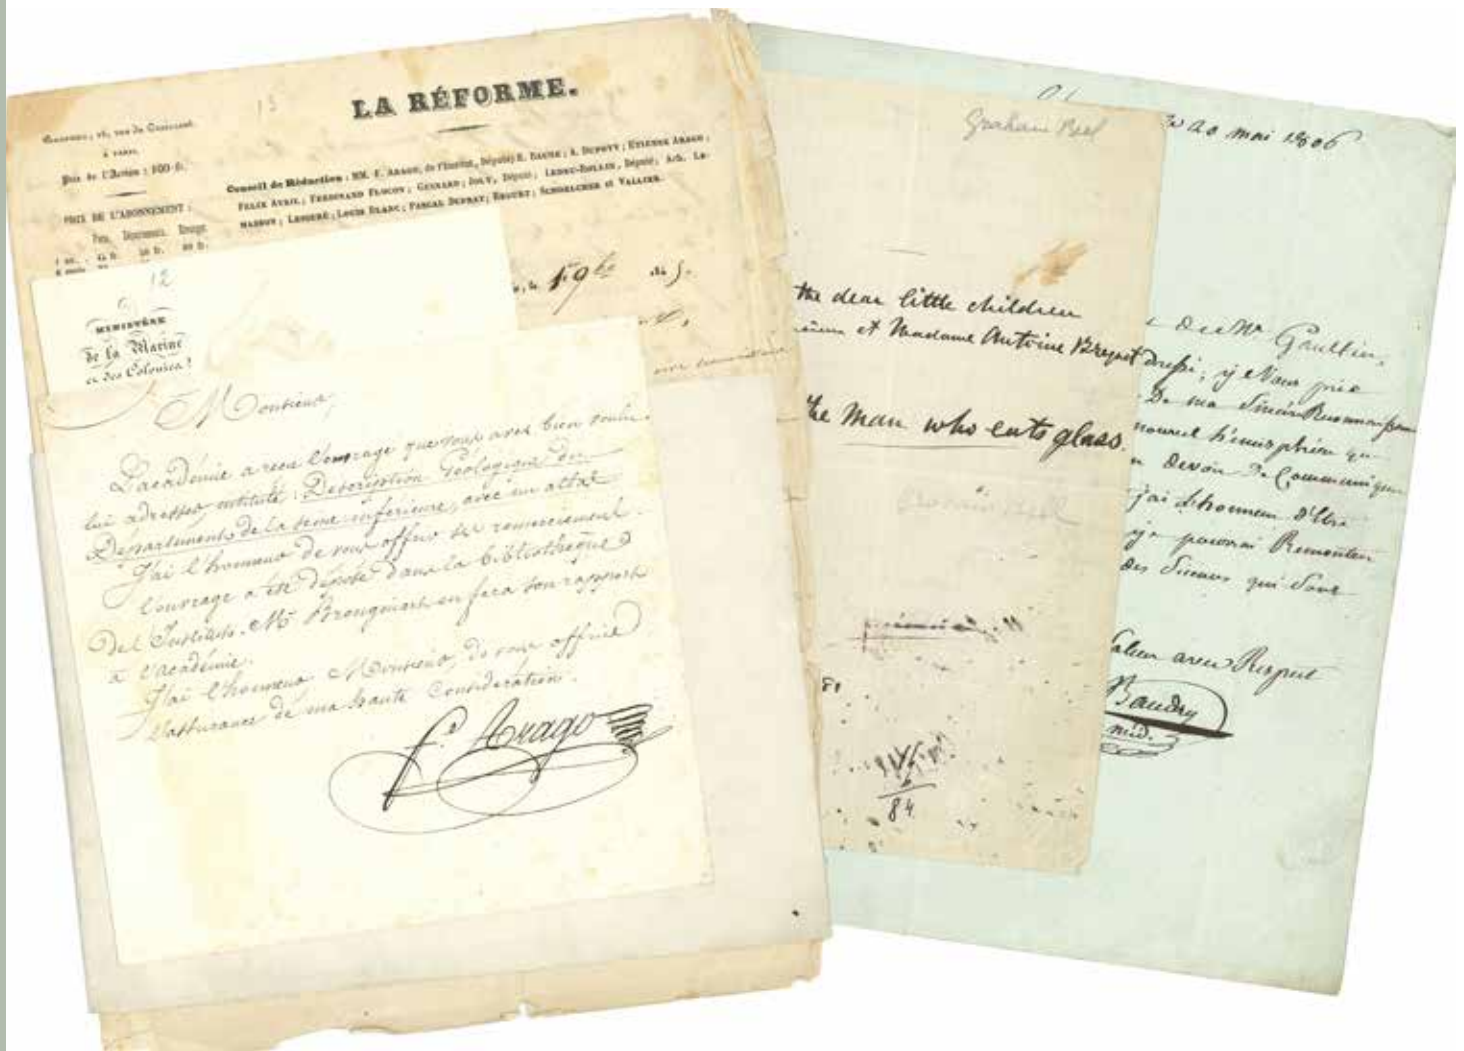 LA RÉFORME.
13
BUREAUX, rue du Croissant
A PARIS.
Prix de l'Action : 100 fr.
PRIX DE L'ABONNEMENT :
Paris. Départemens. Étranger
Conseil de Rédaction : MM. F. ARAGO, de l'Institut, Député; E. BAUNE; A. DUPOTY; ETIENNE ARAGO;
FELIX AVRIL; FERDINAND FLOCON; JOLY, Député; LEDRU-ROLLIN, Député;
LESSERÉ; LOUIS BLANC; PASCAL DUPRAT; RECURT; SCHOELCHER et VALLIER.
12
MINISTÈRE
de la Marine
et des Colonies
Monsieur,
L'académie a reçu l'ouvrage que vous avez bien voulu
lui adresser, intitulé : Description Géologique du
Département de la Seine inférieure, avec un atlas
J'ai l'honneur de vous offrir ses remerciements.
L'ouvrage a été déposé dans la bibliothèque
de l'Institut. Mr Brongniart en fera son rapport
à l'académie.
J'ai l'honneur Monsieur, de vous offrir
l'assurance de ma haute Considération.
f. Arago
Graham Bell
the dear little children
et Madame Antoine Breguet
the man who eats glass.
Graham Bell
81
84
20 mai 1806
Mr Gaultier,
je vous prie
De ma Sincère
nouvel hémisphère que
devoir De Communiquer
j'ai L'honneur D'être
je pourrai Remonter
des qui Sont
avec Respect
Baudry
méd.